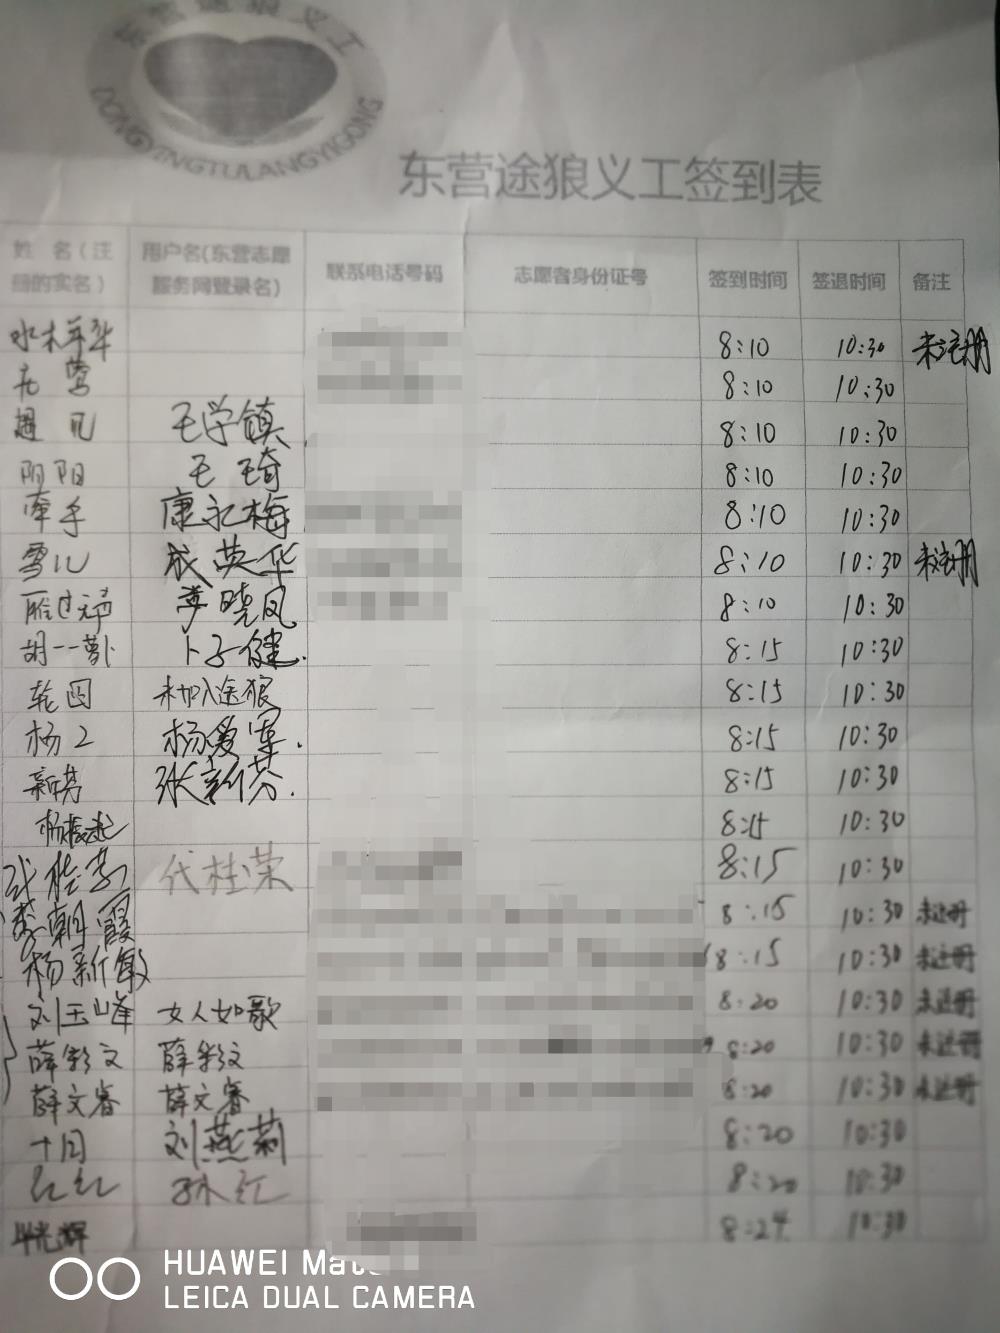 东营途狼义工
DONGYINGTULANGYIGONG
东营途狼义工签到表
姓 名（注册的实名） 用户名(东营志愿服务网登录名) 联系电话号码 志愿者身份证号 签到时间 签退时间 备注
水木年华 8:10 10:30 未注册
8:10 10:30
毛学镇 8:10 10:30
阴阳 王琦 8:10 10:30
牵手 康永梅 8:10 10:30
雪儿 成英华 8:10 10:30 未注册
雁过无声 李晓凤 8:10 10:30
胡一一萝卜 卜子健. 8:15 10:30
轮回 未加入途狼 8:15 10:30
杨2 杨爱军. 8:15 10:30
新芬 张新芬. 8:15 10:30
8:15 10:30
代桂荣 8:15 10:30
李朝霞 8:15 10:30 未注册
杨新敏 8:15 10:30 未注册
刘玉峰 女人如歌 8:20 10:30 未注册
薛彩文 薛彩文 8:20 10:30 未注册
薛文睿 薛文睿 8:20 10:30 未注册
十月 刘燕莉 8:20 10:30
红红 孙红 8:20 10:30
毕光辉 8:24 10:30
HUAWEI Mate
LEICA DUAL CAMERA